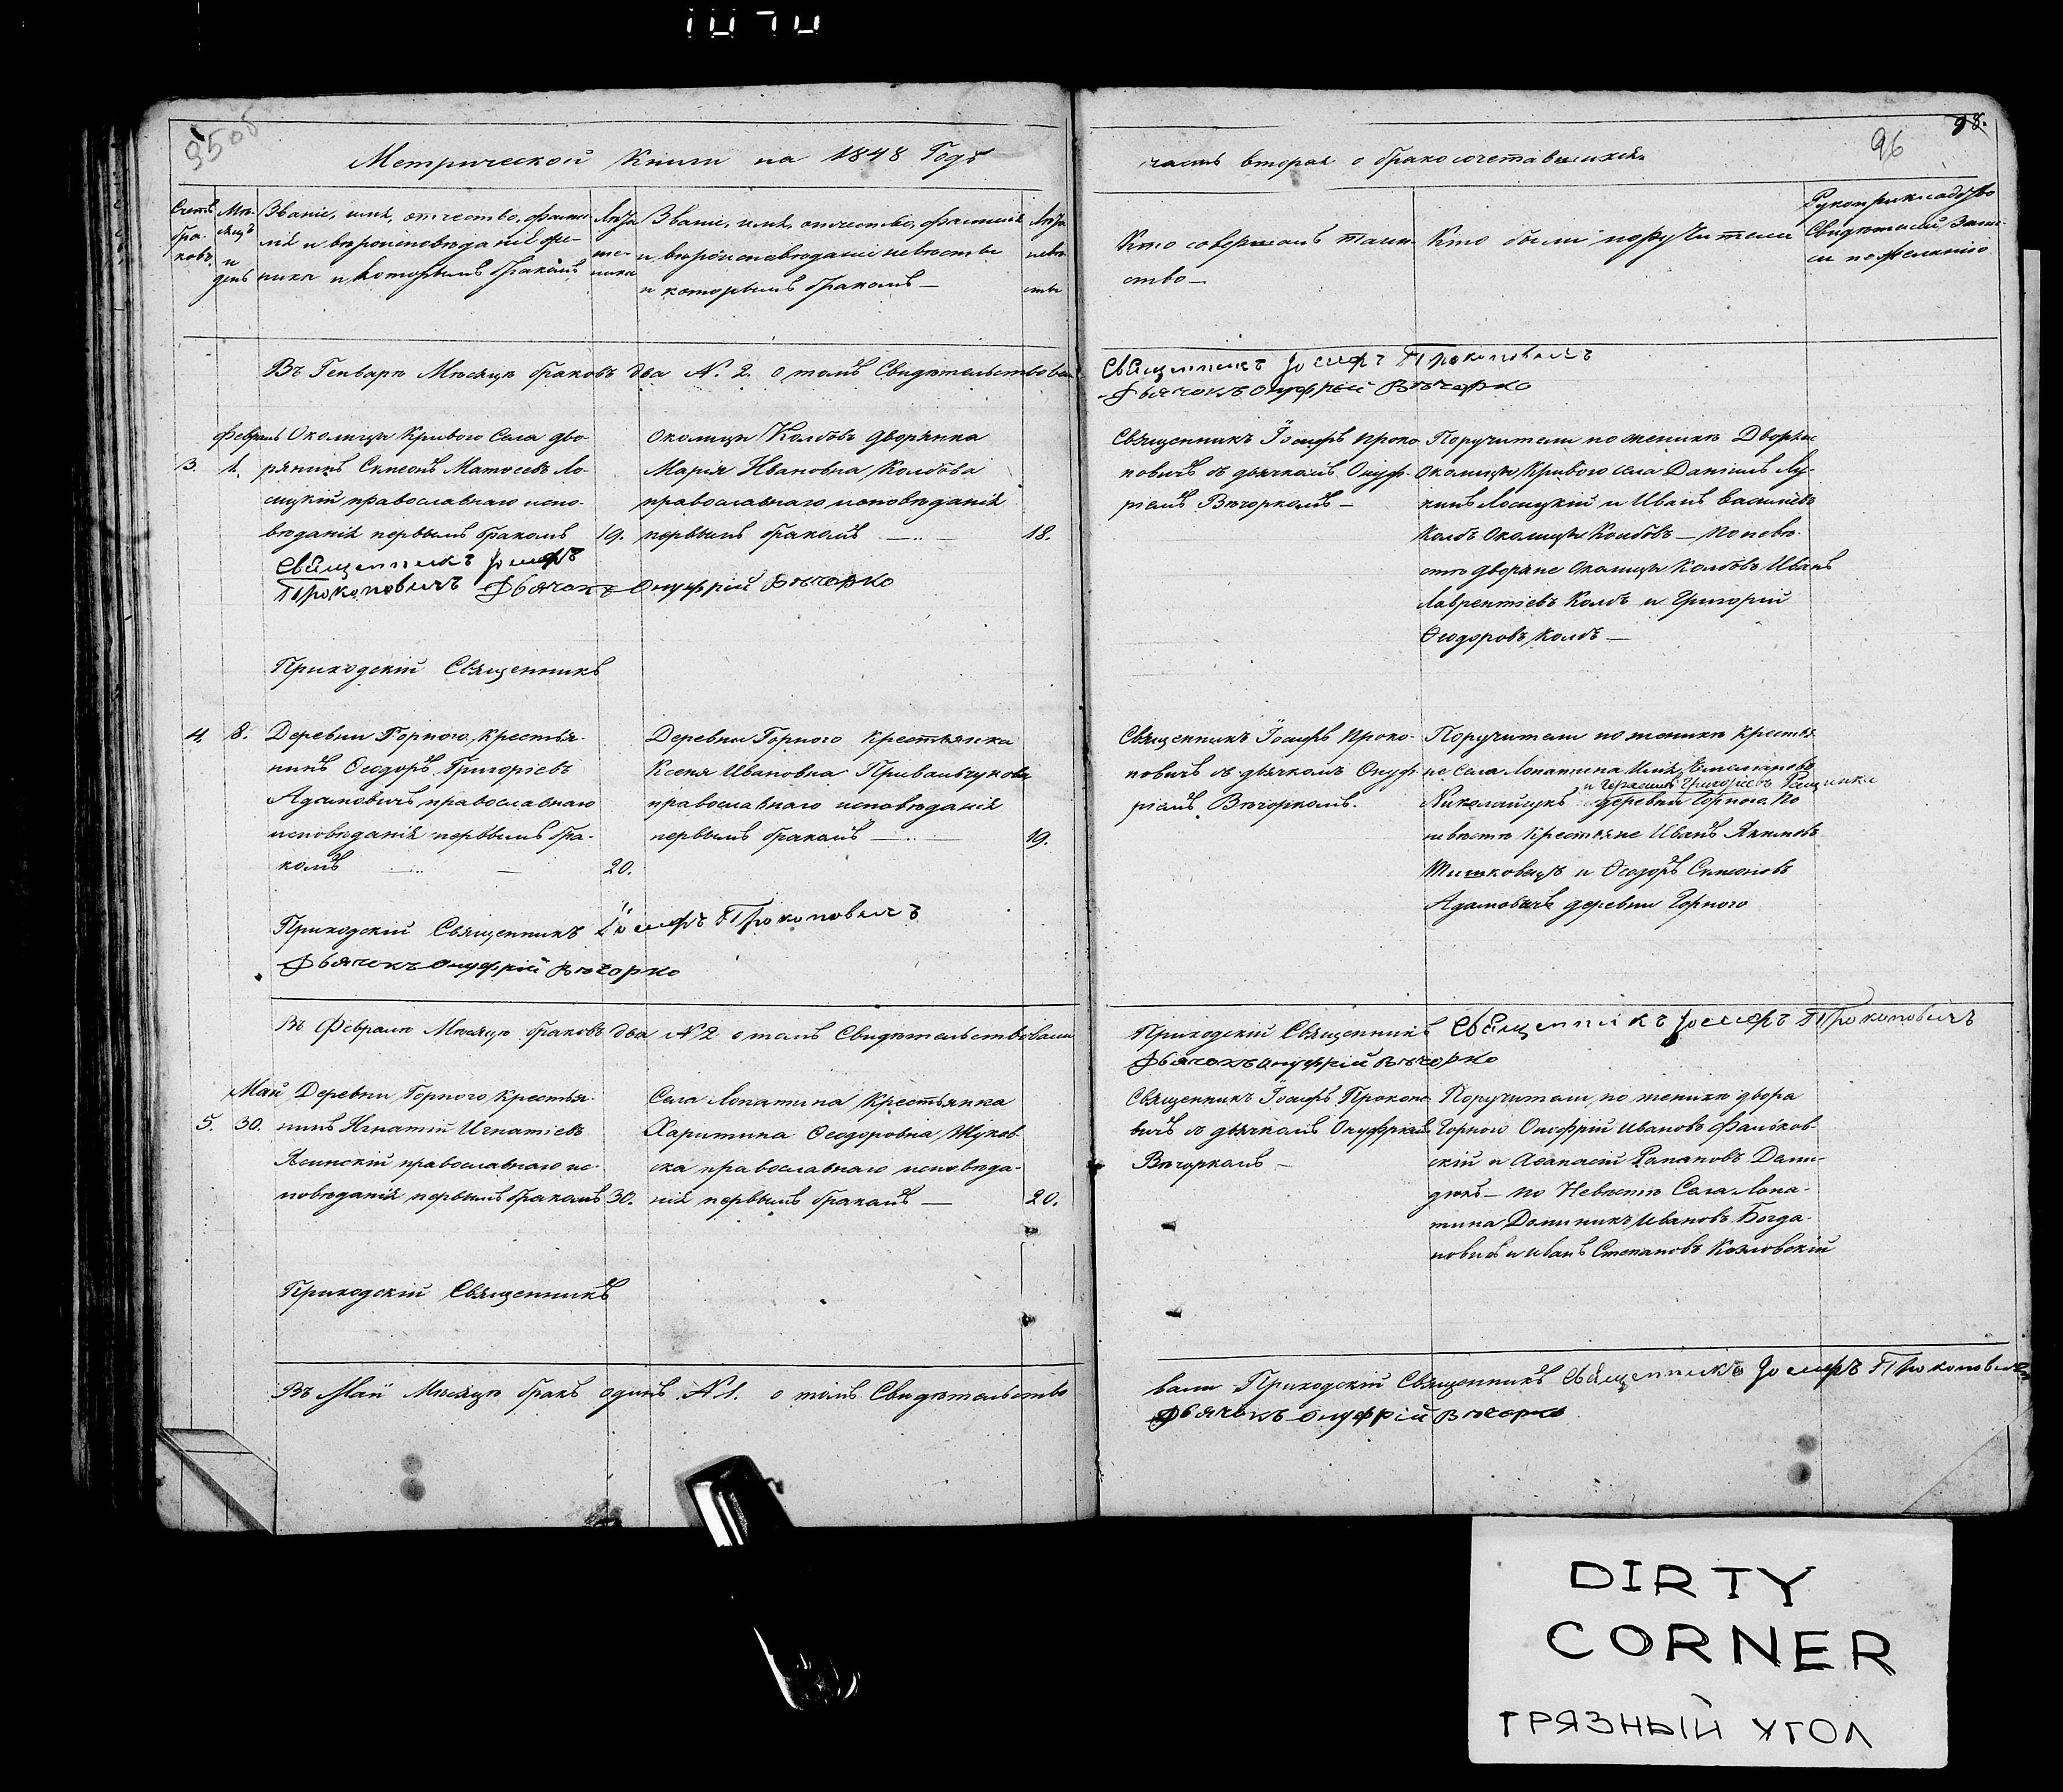 Метрической Книги на 1848 Годъ
часть вторая о бракосочетавшихся
96
98.
Счетъ бра-ковъ
Мѣ-сяцъ и день
Званіе, имя, отчество, фами-
лія и вѣроисповѣданіе же-
ниха и которымъ бракомъ
Лѣта же-ниха
Званіе, имя, отчество, фамилія
и вѣроисповѣданіе невѣсты
и которымъ бракомъ —
Лѣта невѣ-сты
Кто совершалъ таин-
ство —
Кто были поручители
Рукоприкладство
Свидѣтелей запи-
си по желанію
Въ Генварѣ Мѣсяцѣ браковъ два N. 2. о томъ Свидѣтельствовали
Священникъ Іосифъ Прокоповичъ
Дьячокъ Онуфрій Вѣчорко
Февраль
3.
1.
Околицы Кривого Села дво-
рянинъ Симеонъ Матѳеевъ Ло-
сицкій православнаго испо-
вѣданія первымъ бракомъ
19.
Околицы Колбовъ дворянка
Марія Ивановна Колбова
православнаго исповѣданія
первымъ бракомъ —
18.
Священникъ Іосифъ Проко-
повичъ съ дьячкомъ Онуф-
ріемъ Вѣчоркомъ —
Поручители по женихѣ Дворяне
Околицы Кривого села Даніилъ Лу-
кинъ Лосицкій и Иванъ Васильевъ
Колбъ Околицы Колбовъ — По невѣ-
стѣ дворяне Околицы Колбовъ Иванъ
Лаврентіевъ Колбъ и Григорій
Ѳеодоровъ Колбъ —
Священникъ Іосифъ
Прокоповичъ Дьячокъ Онуфрій Вѣчорко
Приходскій Священникъ
4.
8.
Деревни Горного крестья-
нинъ Ѳеодоръ Григоріевъ
Адамовичъ православнаго
исповѣданія первымъ бра-
комъ —
20.
Деревни Горного крестьянка
Ксенія Ивановна Привальчукова
православнаго исповѣданія
первымъ бракомъ —
19.
Священникъ Іосифъ Проко-
повичъ съ дьячкомъ Онуф-
ріемъ Вѣчоркомъ.
Поручители по женихѣ крестья-
не села Лопатина Илія Емельяновъ
и Герасимъ Григоріевъ
Николайчукъ деревни Горного По
невѣстѣ крестьяне Иванъ Якимовъ
и Ѳеодоръ Симеоновъ
Адамовичъ деревни Горного
Приходскій Священникъ Іосифъ Прокоповичъ
Дьячокъ Онуфрій Вѣчорко
Въ Февралѣ Мѣсяцѣ браковъ два N 2 о томъ Свидѣтельствовали
Приходскій Священникъ Священникъ Іосифъ Прокоповичъ
Дьячокъ Онуфрій Вѣчорко
Май
5.
30.
Деревни Горного крестья-
нинъ Игнатій Игнатіевъ
Ясинскій православнаго ис-
повѣданія первымъ бракомъ
30.
Села Лопатина крестьянка
Харитина Ѳеодоровна Жуков-
ска православнаго исповѣда-
нія первымъ бракомъ —
20.
Священникъ Іосифъ Прокопо-
вичъ съ дьячкомъ Онуфріемъ
Вѣчоркомъ —
Поручители, по женихѣ двора
Горного Онофрій Ивановъ Фальков-
скій и Аѳанасій Дани-
дюкъ — по Невѣстѣ Села Лопа-
тина Доминикъ Ивановъ Богда-
новичъ и Иванъ Степановъ Козловскій
Приходскій Священникъ
Въ Маи Мѣсяцѣ бракъ одинъ N 1. о томъ Свидѣтельство
вали Приходскій Священникъ Священникъ Іосифъ Прокоповичъ
Дьячокъ Онуфрій Вѣчорко
DIRTY
CORNER
ГРЯЗНЫЙ УГОЛ